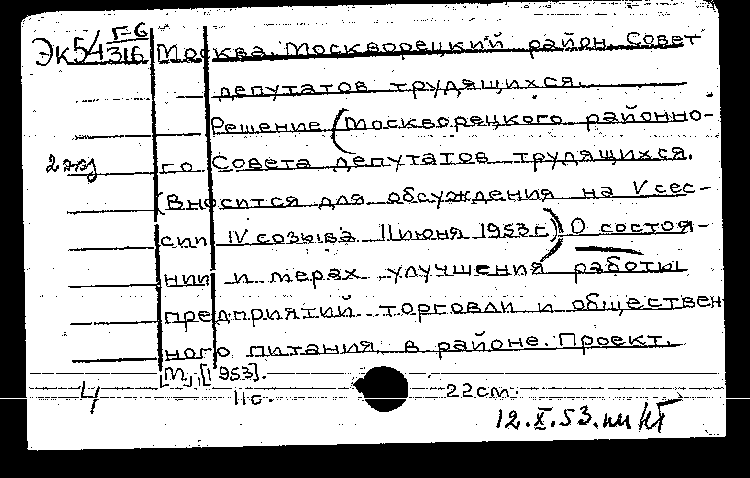 Эк54 Г-6/316 Москва. Москворецкий район. Совет
депутатов трудящихся.
Решение (Москворецкого районно-
2 экз го Совета депутатов трудящихся.
(Вносится для обсуждения на V сес-
сии IV созыва 11 июня 1953 г.) О состоя-
нии и мерах улучшения работы
предприятий торговли и обществен
ного питания в районе. Проект.
[М., [1953].
4 11с. 22см.
12.X.53.